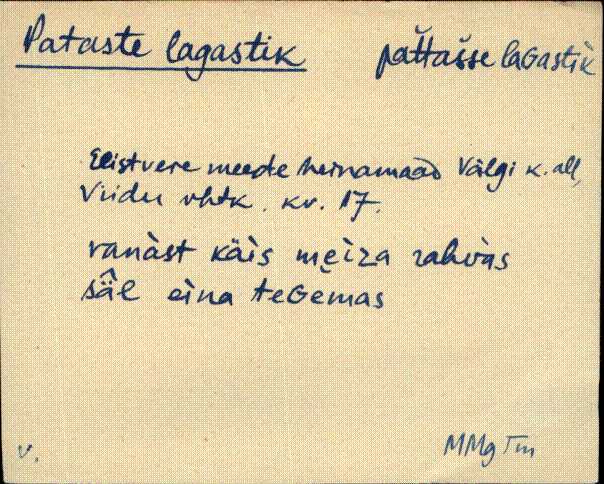 Pataste lagastik pǎttašse laGastik
Elistvere meeste heinamaad Välgi k. all,
Viidu vhtk. kv. 17.
vanàst käìs meìza rahvàs
sä̂l eìna teGemas
v. MMg Tm